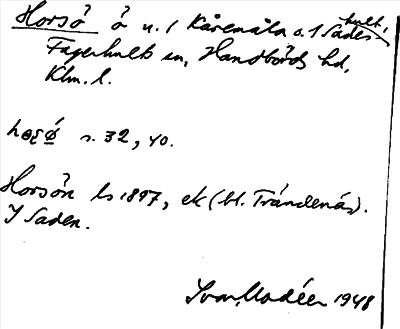 Horsö ö u. / Kåremåla o. / Sades-hult,
Fagerhults sn, Handbörds hd,
Klm. l.
s. 32, 40.
Horsön ls 1897, ek (bl. Trändenäs).
I Saden.
Ivar Modéer 1948